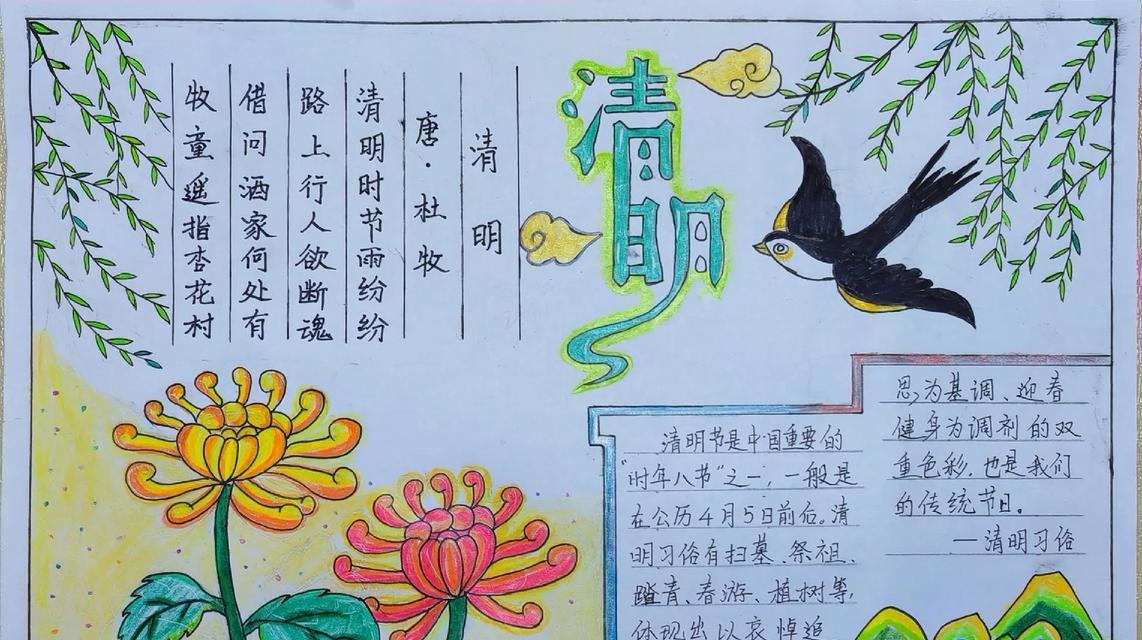 清明
清明
唐·杜牧
清明时节雨纷纷
路上行人欲断魂
借问酒家何处有
牧童遥指杏花村
清明节是中国重要的
“时年八节”之一，一般是
在公历4月5日前后。清
明习俗有扫墓、祭祖、
踏青、春游、植树等，
体现出以哀悼追
思为基调、迎春
健身为调剂的双
重色彩，也是我们
的传统节日。
—清明习俗